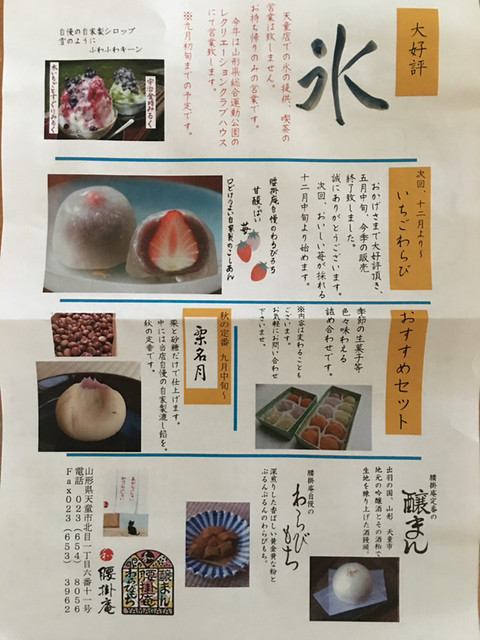 大好評
氷
天童店での氷の提供、喫茶の
営業は致しません。
お持ち帰りのみの営業です。
今年は山形県総合運動公園の
レクリエーションクラブハウス
にて営業致します。
※九月初旬までの予定です。
自慢の自家製シロップ
雪のように
ふわふわキーン
氷いちごとすぐりみるく
宇治金時みるく
次回、十二月より〜
いちごわらび
おかげさまで大好評頂き、
五月中旬、今季の販売
終了致しました。
誠にありがとうございます。
次回、おいしい苺が採れる
十二月中旬より始めます。
腰掛庵自慢のわらびもち
甘酸っぱい
苺
口どけのよい自家製のこしあん
おすすめセット
季節の生菓子等
色々味わえる
詰め合わせです。
※内容は変わることも
ございます。
お気軽にお問い合わせ
下さいませ。
秋の定番 九月中旬〜
栗名月
栗と砂糖だけで仕上げます。
中には当店自慢の自家製漉し餡を。
秋の定番です。
腰掛庵定番の
醸まん
出羽の国、山形 天童市
地元の吟醸酒とその酒粕で
生地を練り上げた酒饅頭。
腰掛庵自慢の
わらびもち
深煎りした香ばしい黄金黄な粉と
ぷるんぷるんのわらびもち。
醸まん
腰掛庵
わらびもち
腰掛庵
山形県天童市北目一丁目六番十一号
電話 023(654)8056
Fax023(653)3962